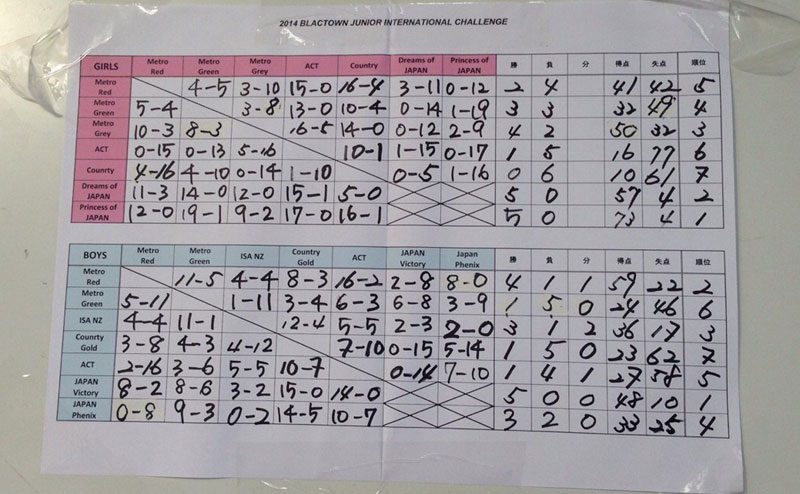 2014 BLACTOWN JUNIOR INTERNATIONAL CHALLENGE
GIRLS Metro Red Metro Green Metro Grey ACT Country Dreams of JAPAN Princess of JAPAN 勝 負 分 得点 失点 順位
Metro Red 4-5 3-10 15-0 16-4 3-11 0-12 2 4 41 42 5
Metro Green 5-4 3-8 13-0 10-4 0-14 1-19 3 3 32 49 4
Metro Grey 10-3 8-3 16-5 14-0 0-12 2-9 4 2 50 32 3
ACT 0-15 0-13 5-16 10-1 1-15 0-17 1 5 16 77 6
Counrty 4-16 4-10 0-14 1-10 0-5 1-16 0 6 10 61 7
Dreams of JAPAN 11-3 14-0 12-0 15-1 5-0 5 0 57 4 2
Princess of JAPAN 12-0 19-1 9-2 17-0 16-1 5 0 73 4 1
BOYS Metro Red Metro Green ISA NZ Country Gold ACT JAPAN Victory Japan Phenix 勝 負 分 得点 失点 順位
Metro Red 11-5 4-4 8-3 16-2 2-8 8-0 4 1 1 59 22 2
Metro Green 5-11 1-11 3-4 6-3 6-8 3-9 1 5 0 24 46 6
ISA NZ 4-4 11-1 12-4 5-5 2-3 2-0 3 1 2 36 17 3
Counrty Gold 3-8 4-3 4-12 7-10 0-15 5-14 1 5 0 23 62 7
ACT 2-16 3-6 5-5 10-7 0-14 7-10 1 4 1 27 58 5
JAPAN Victory 8-2 8-6 3-2 15-0 14-0 5 0 0 48 10 1
JAPAN Phenix 0-8 9-3 0-2 14-5 10-7 3 2 0 33 25 4